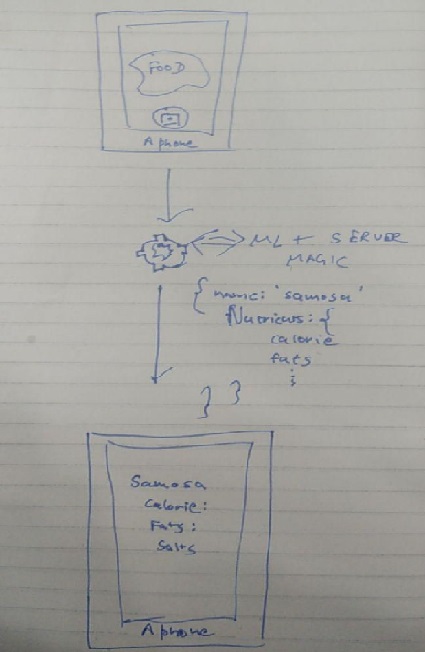 FOOD
A phone
ML + SERVER
MAGIC
{ name: 'samosa'
Nutrients: {
calorie
fats
⋮
} }
Samosa
Calorie:
Fats:
Salts
A phone